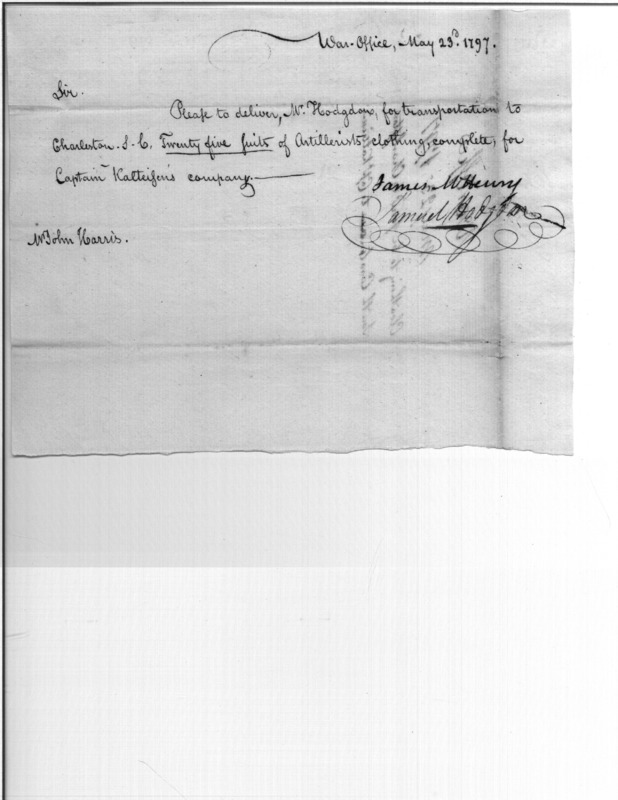 War-Office, May 23d. 1797.
Sir.
Please to deliver, Mr. Hodgdon, for transportation to
Charleston. S. C. Twenty five suits of Artillerists clothing, complete, for
Captain Kalteisen's company.
James McHenry
Samuel Hodgdon
Mr John Harris.